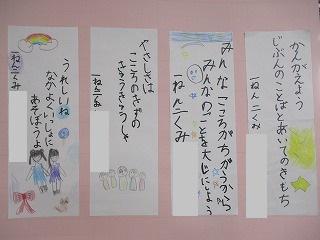 かんがえよう
じぶんのことばとあいてのきもち
一ねん二くみ
みんなこころがちがうから
みんなのことを大じにしよう
一ねん二くみ
やさしさは
こころのきずの
きゅうきゅうしゃ
一ねん二くみ
うれしいね
なかよくいっしょに
あそぼうよ
一ねん二くみ